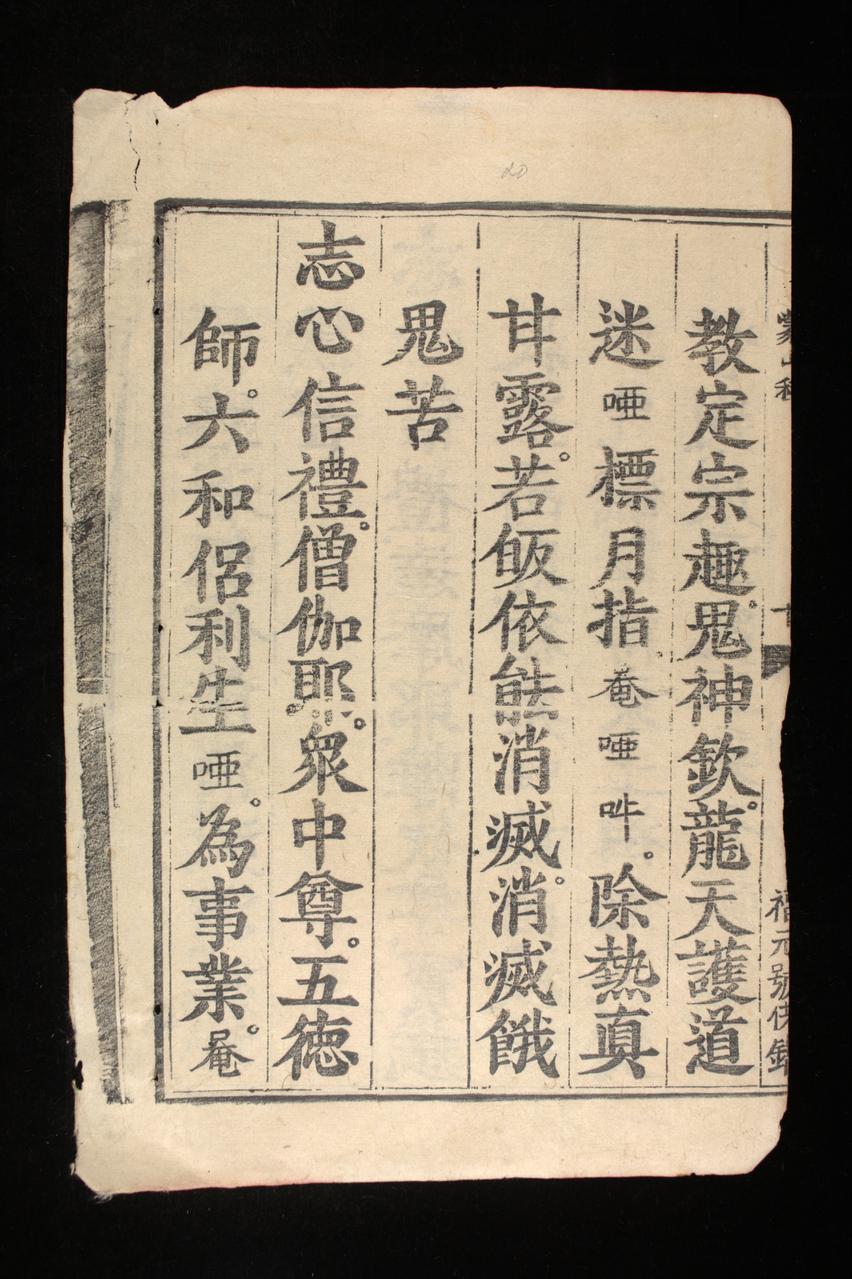 20
蒙山科
十
福元號供
教定宗趣。鬼神欽。龍天護道
迷啞標月指。菴啞吽。除熱真
甘露。若皈依能消滅。消滅餓
鬼苦
志心信禮。僧伽耶。衆中尊。五徳
師。六和侶利生啞。為事業。唵